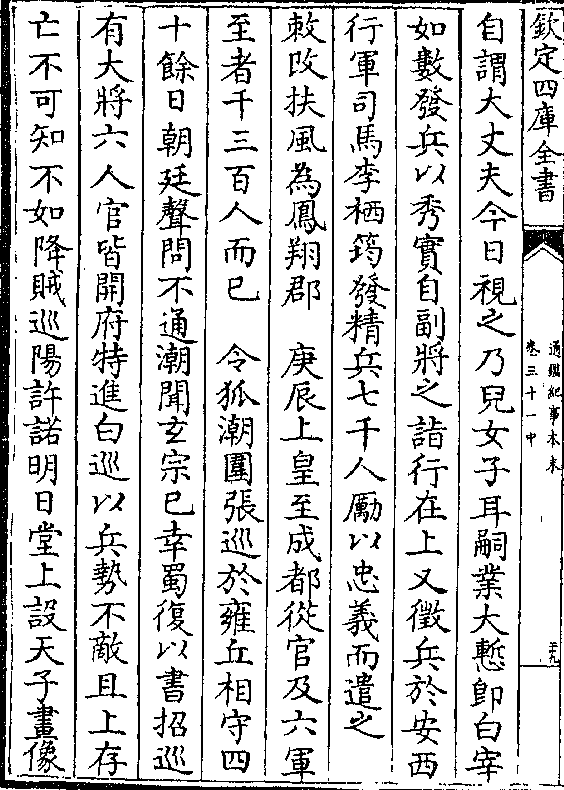 欽定四庫全書
通鑑紀事本末
卷三十一中
三九
自謂大丈夫今日視之乃兒女子耳嗣業大慙即白宰
如數發兵以秀實自副將之詣行在上又徵兵於安西
行軍司馬李栖筠發精兵七千人勵以忠義而遣之
敕改扶風為鳳翔郡　庚辰上皇至成都從官及六軍
至者千三百人而已　令狐潮圍張巡於雍丘相守四
十餘日朝廷聲問不通潮聞玄宗已幸蜀復以書招巡
有大將六人官皆開府特進白巡以兵勢不敵且上存
亡不可知不如降賊巡陽許諾明日堂上設天子畫像